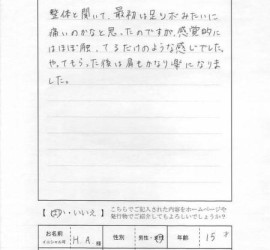 整体と聞いて、最初は足つぼみたいに
痛いのかなと思ったのですが、感覚的に
はほぼ触ってるだけのような感じでした。
やってもらった後は肩もかなり楽になりま
した。
【 はい・いいえ 】 こちらでご記入された内容をホームページや
発行物でご紹介してもよろしいでしょうか？
お名前 H.A. 様 性別 男性・女性 年齢 15 才